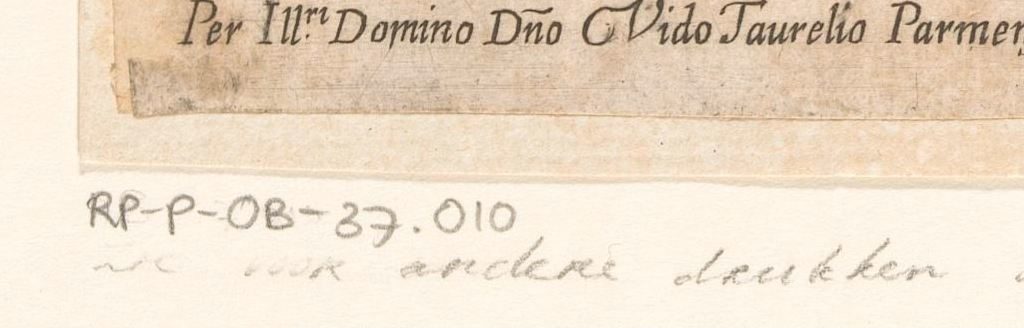 Per Ill.ri Domino Dño Gvido Taurelio Parmen
RP-P-OB-37.010
ook andere drukken